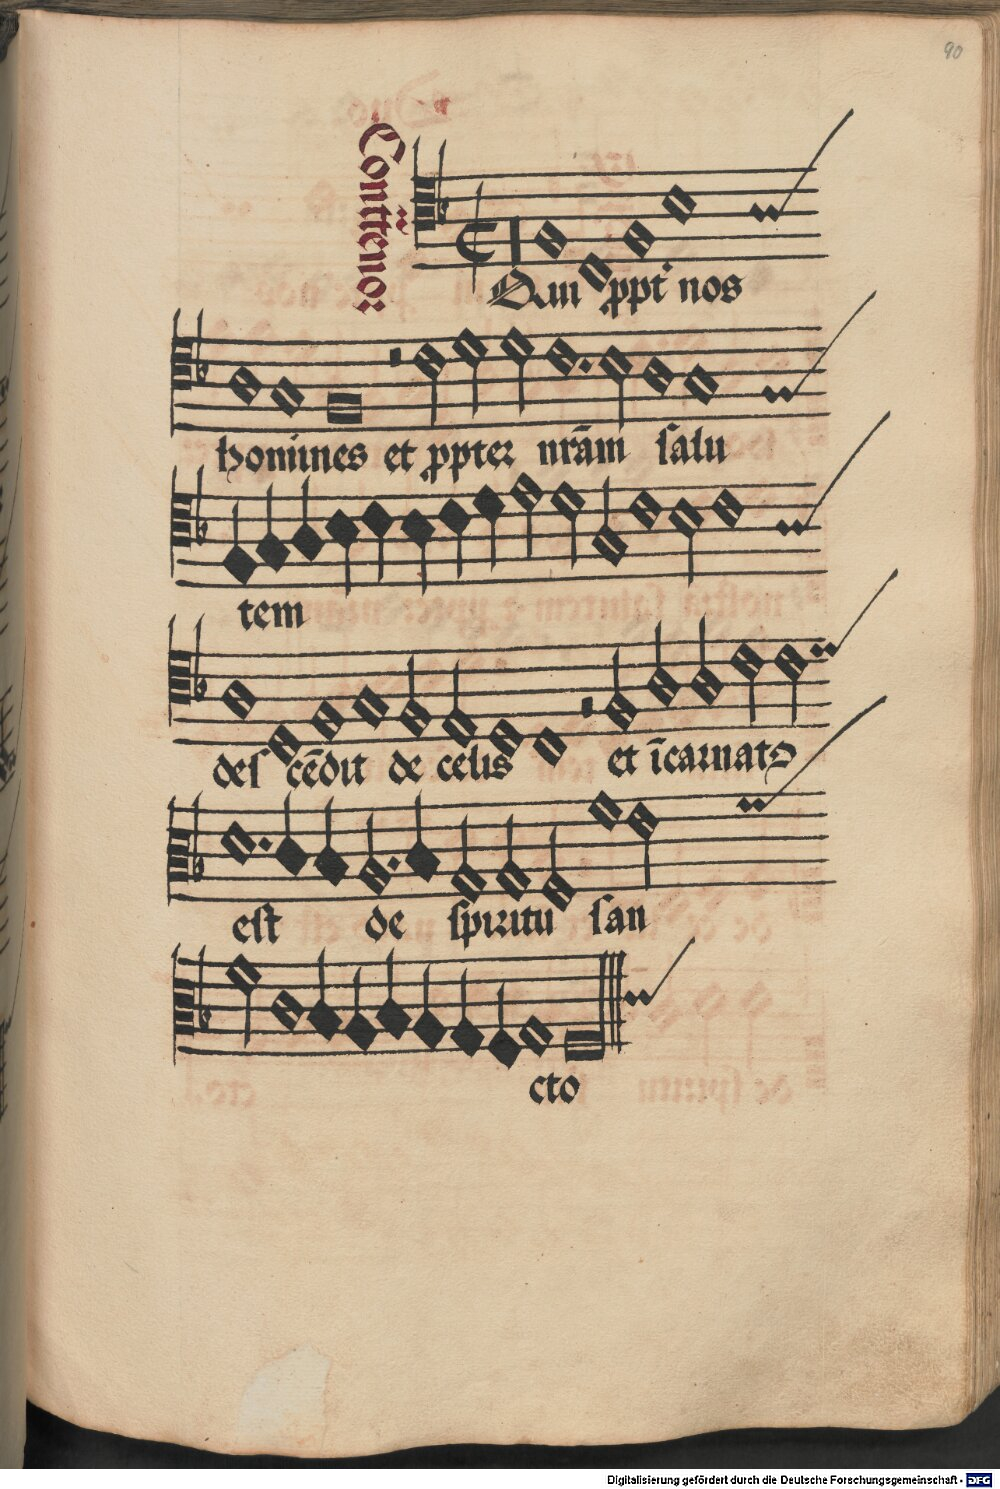 90
Contratenor
Qui ꝓpt nos
homines et ꝓpter nr̄am salu
tem
des cēdit de celis et īcarnatꝰ
est de spiritu san
cto
Digitalisierung gefördert durch die Deutsche Forschungsgemeinschaft - DFG